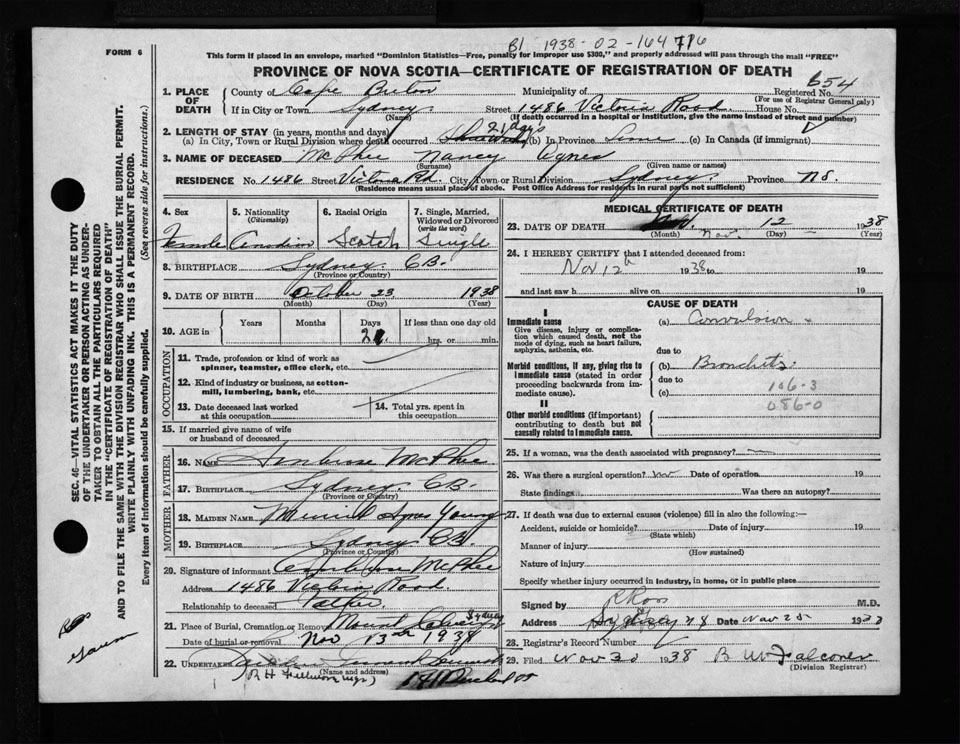 B1 1938-02-164716
FORM 6
This form if placed in an envelope, marked "Dominion Statistics—Free, penalty for improper use $300," and properly addressed will pass through the mail "FREE"
PROVINCE OF NOVA SCOTIA—CERTIFICATE OF REGISTRATION OF DEATH
654
1. PLACE OF DEATH County of Cape Breton Municipality of Registered No.
(For use of Registrar General only)
If in City or Town Sydney (Name) Street 1486 Victoria Road House No.
(If death occurred in a hospital or institution, give the name instead of street and number)
2. LENGTH OF STAY (in years, months and days)
(a) In City, Town or Rural Division where death occurred 21 days (b) In Province Same (c) In Canada (if immigrant)
3. NAME OF DECEASED McPhee Nancy Agnes
(Surname) (Given name or names)
RESIDENCE No. 1486 Street Victoria Rd. City, Town or Rural Division Sydney Province NS.
(Residence means usual place of abode. Post Office Address for residents in rural parts not sufficient)
4. Sex
Female
5. Nationality (Citizenship)
Canadian
6. Racial Origin
Scotch
7. Single, Married, Widowed or Divorced (write the word)
Single
8. BIRTHPLACE Sydney C.B.
(Province or Country)
9. DATE OF BIRTH October 23 1938
(Month) (Day) (Year)
10. AGE in Years Months Days If less than one day old
21 hrs. or min.
OCCUPATION
11. Trade, profession or kind of work as spinner, teamster, office clerk, etc.
12. Kind of industry or business, as cotton-mill, lumbering, bank, etc.
13. Date deceased last worked at this occupation
14. Total yrs. spent in this occupation
15. If married give name of wife or husband of deceased
FATHER
16. NAME Ambrose McPhee
17. BIRTHPLACE Sydney C.B.
(Province or Country)
MOTHER
18. MAIDEN NAME Young
19. BIRTHPLACE Sydney CB
(Province or Country)
20. Signature of informant McPhee
Address 1486 Victoria Road
Relationship to deceased Father
21. Place of Burial, Cremation or Removal Mount Calvary Sydney
Date of burial or removal Nov 13th 1938
22. UNDERTAKER
(Name and address)
MEDICAL CERTIFICATE OF DEATH
23. DATE OF DEATH Nov. 12 1938
(Month) (Day) (Year)
24. I HEREBY CERTIFY that I attended deceased from:
Nov 12th 1938 to 19
and last saw h alive on 19
CAUSE OF DEATH
I
Immediate cause (a) Convulsion
Give disease, injury or complication which caused death, not the mode of dying, such as heart failure, asphyxia, asthenia, etc.
due to
Morbid conditions, if any, giving rise to immediate cause (stated in order proceeding backwards from immediate cause).
(b) Bronchitis
due to
(c)
106-3
086-0
II
Other morbid conditions (if important) contributing to death but not causally related to immediate cause.
25. If a woman, was the death associated with pregnancy?
26. Was there a surgical operation? no Date of operation 19
State findings Was there an autopsy?
27. If death was due to external causes (violence) fill in also the following:—
Accident, suicide or homicide? Date of injury 19
(State which)
Manner of injury
(How sustained)
Nature of injury
Specify whether injury occurred in industry, in home, or in public place
Signed by Ross M.D.
Address Sydney Date Nov 28 1938
28. Registrar's Record Number
29. Filed Nov 30 1938 B W Falconer
(Division Registrar)
SEC. 46—VITAL STATISTICS ACT MAKES IT THE DUTY
OF THE UNDERTAKER OR PERSON ACTING AS UNDERTAKER TO OBTAIN ALL THE PARTICULARS REQUIRED
IN THE "CERTIFICATE OF REGISTRATION OF DEATH"
AND TO FILE THE SAME WITH THE DIVISION REGISTRAR WHO SHALL ISSUE THE BURIAL PERMIT.
WRITE PLAINLY WITH UNFADING INK. THIS IS A PERMANENT RECORD.
Every item of information should be carefully supplied. (See reverse side for instructions.)